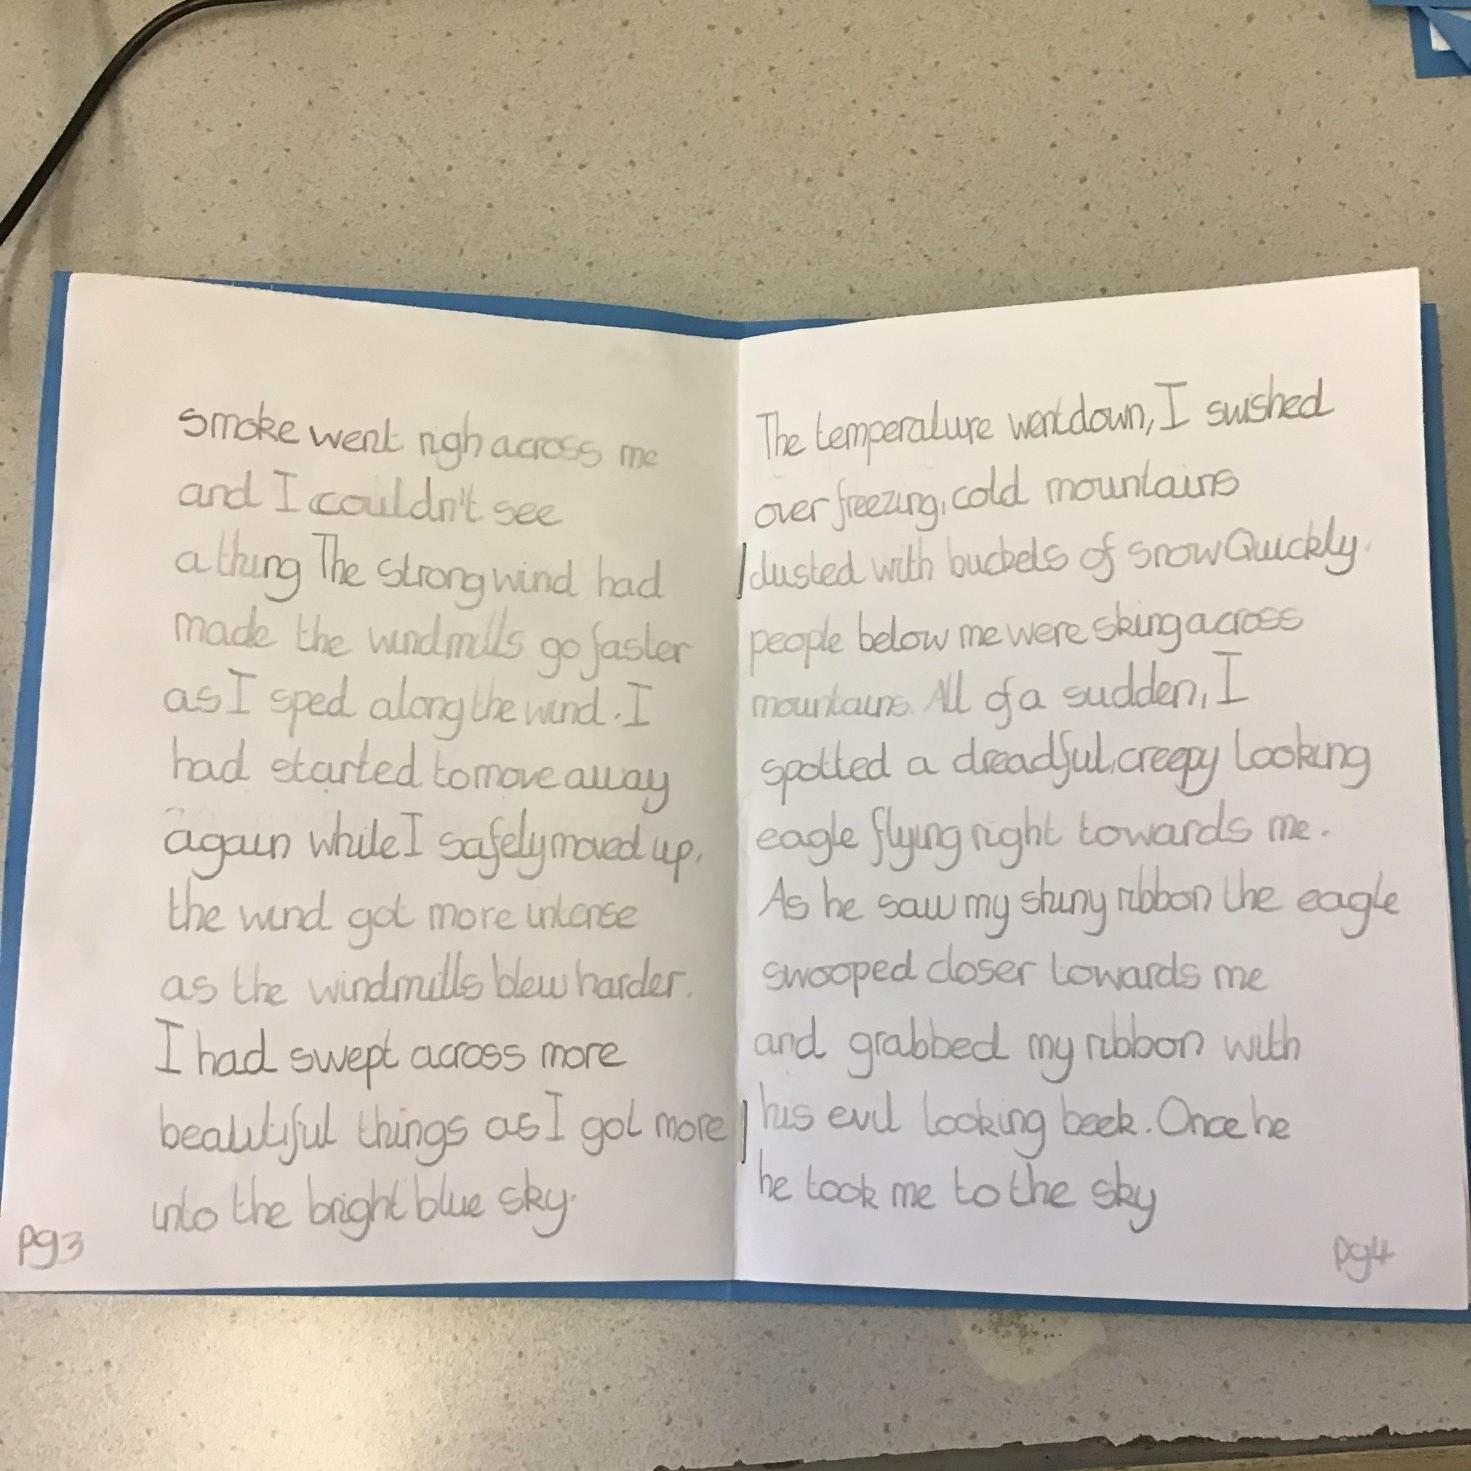 smoke went righ across me
and I couldn't see
a thing The strong wind had
made the windmills go faster
as I sped along the wind. I
had started to move away
again while I safely moved up,
the wind got more intense
as the windmills blew harder.
I had swept across more
beautiful things as I got more
into the bright blue sky.
pg3
The temperature went down, I swished
over freezing, cold mountains
dusted with buckets of snow Quickly.
people below me were skiing across
mountains. All of a sudden, I
spotted a dreadful, creepy looking
eagle flying right towards me.
As he saw my shiny ribbon the eagle
swooped closer towards me
and grabbed my ribbon with
his evil looking beek. Once he
he took me to the sky
pg4